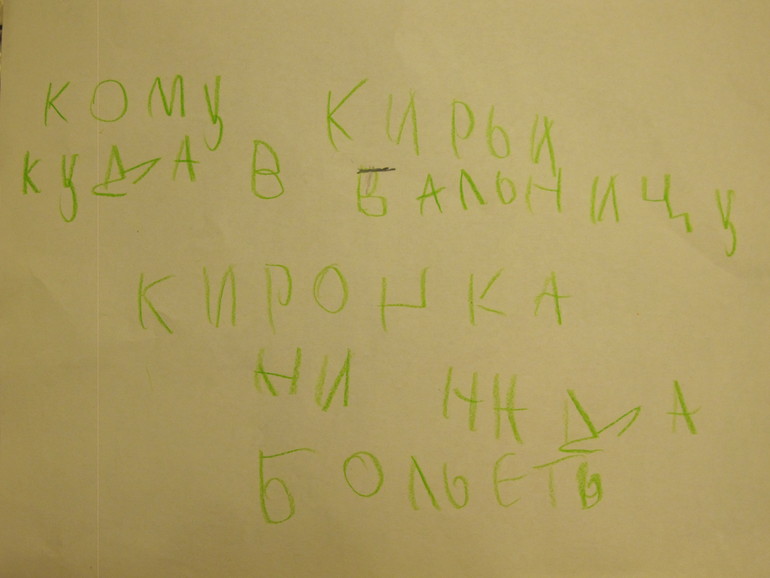 КОМУ КИРЫ
КУДА В БАЛЬНИЦУ
КИРОНКА
НИ ННДА
БОЛЬЕТЬ